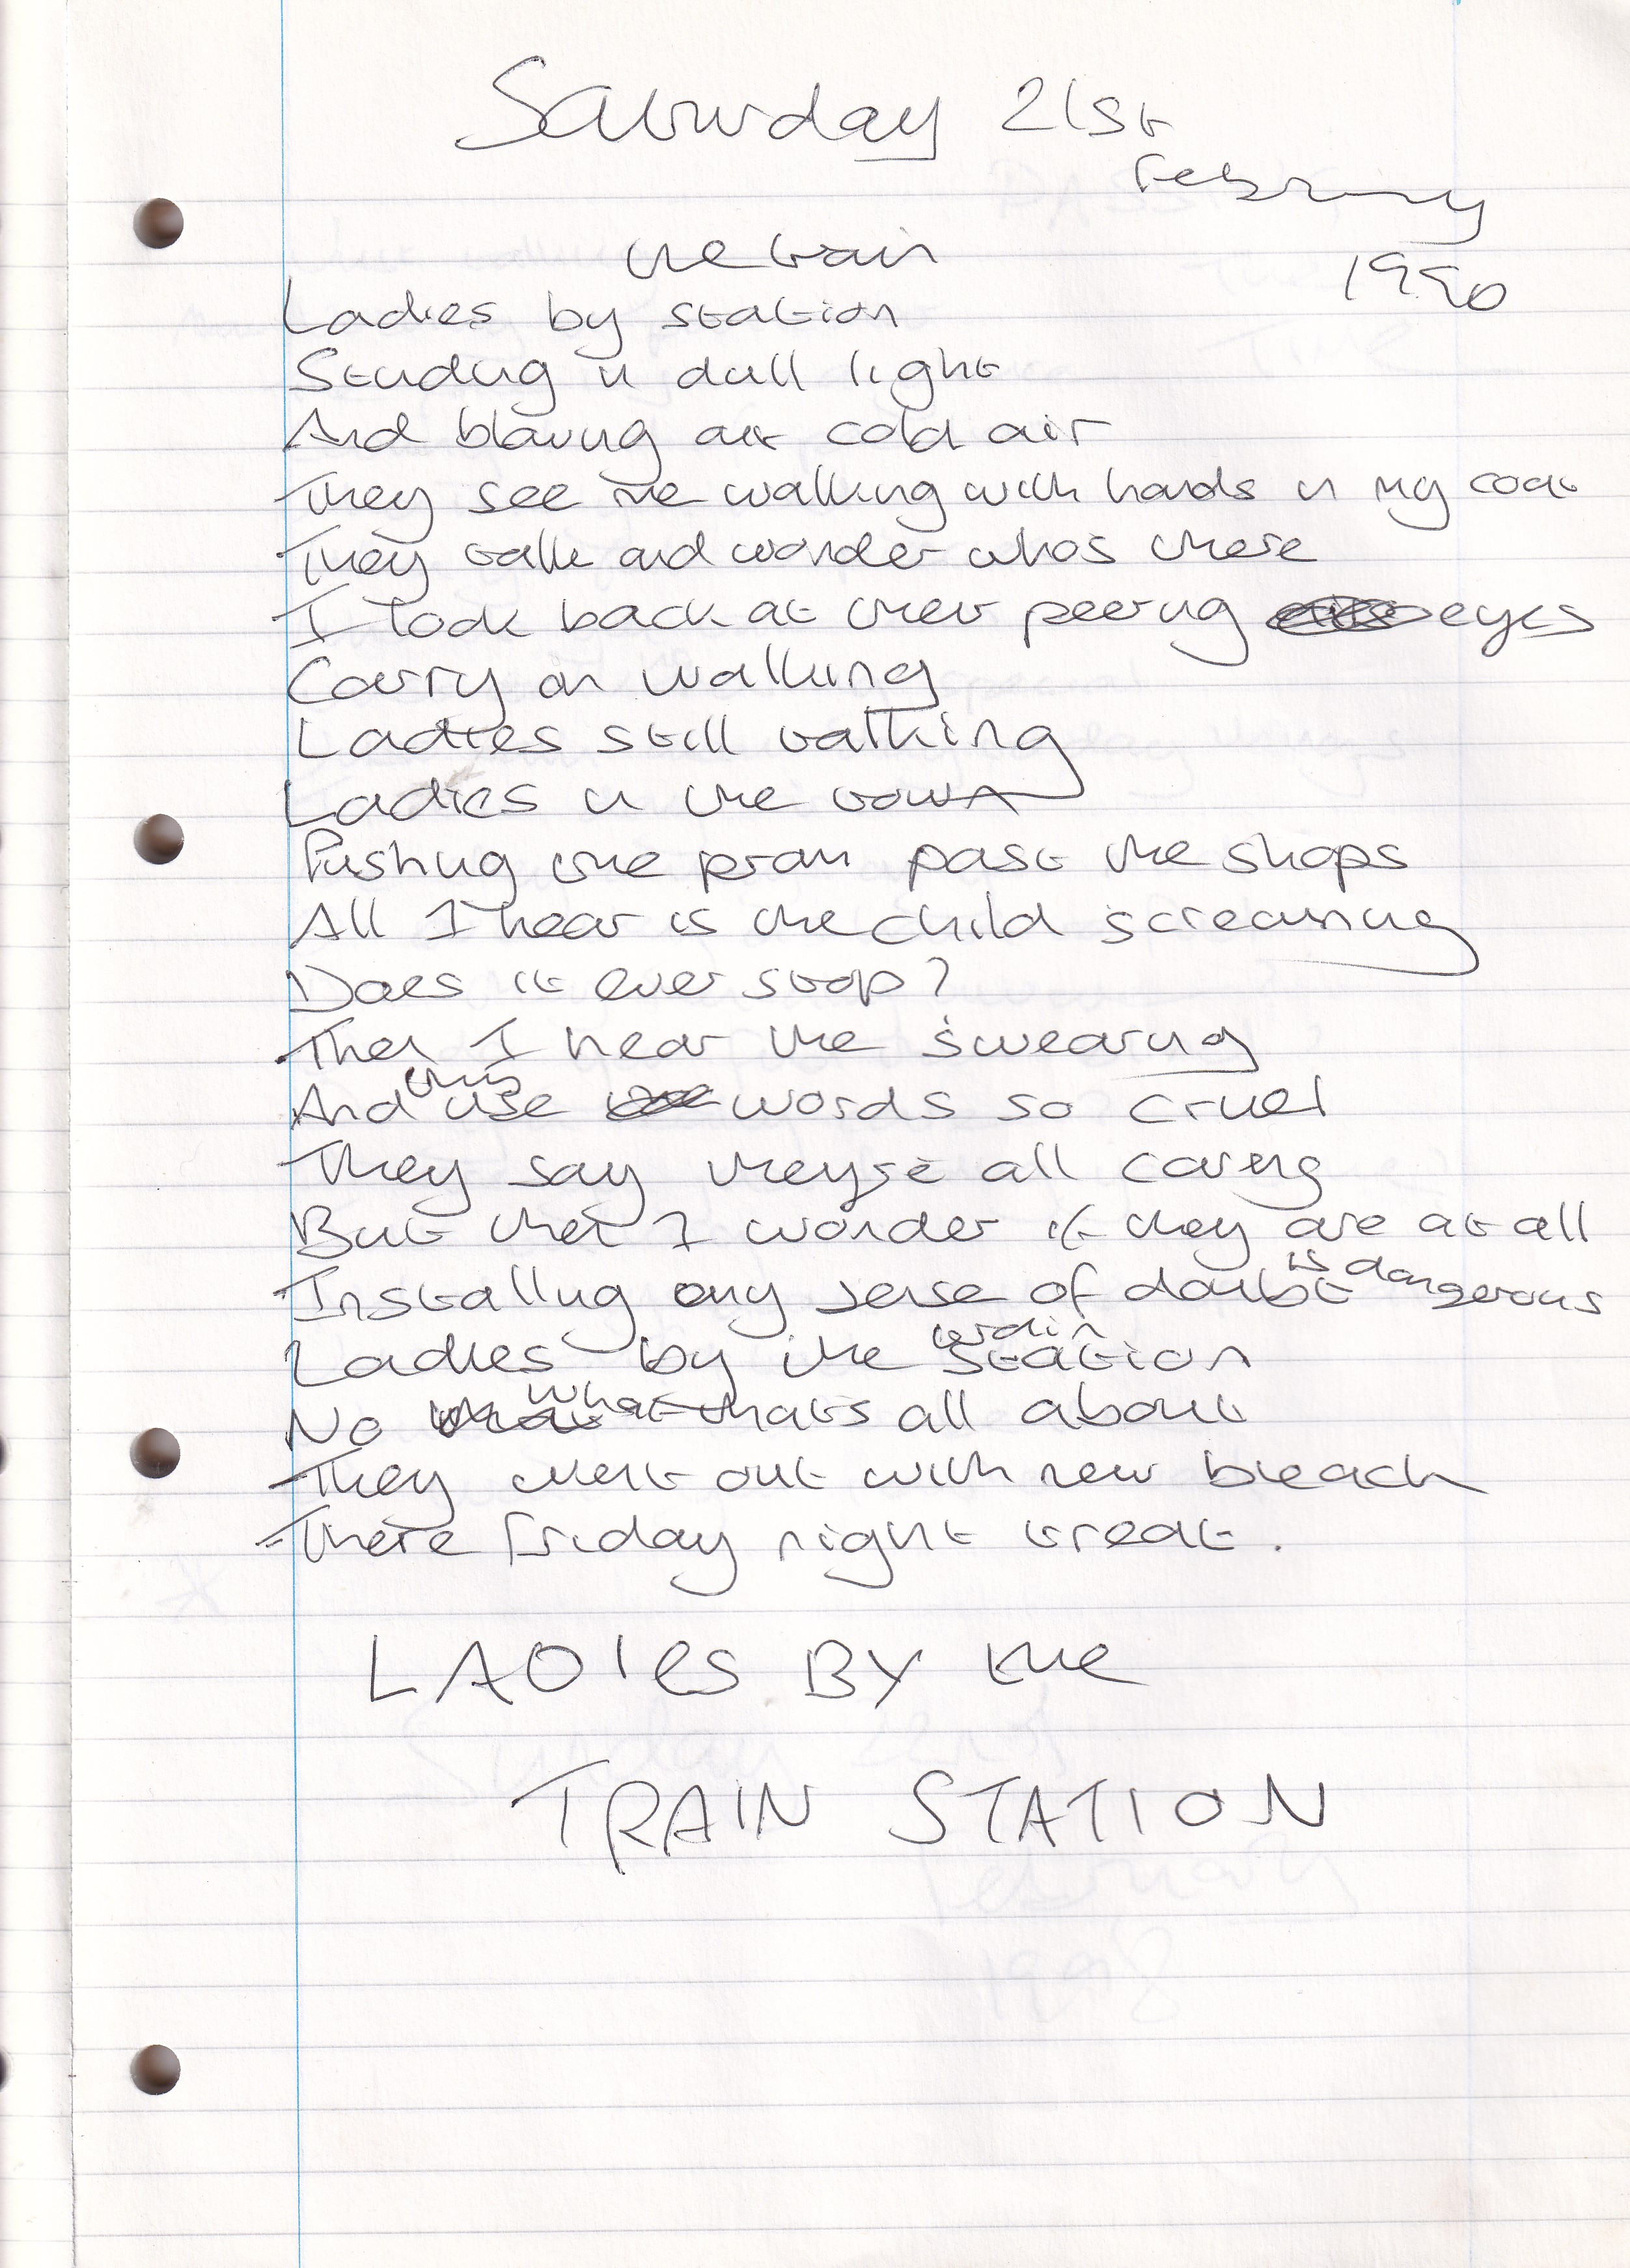 Saturday 21st
February
1990
the train
Ladies by station
Standing in dull light
And blowing out cold air
They see me walking with hands in my coat
They talk and wonder whos there
I look back at their peering eyes
Carry on walking
Ladies still talking
Ladies in the town
Pushing the pram past the shops
All I hear is the child screaming
Does it ever stop?
Then I hear the swearing
this
And use words so cruel
They say theyre all caring
But then I wonder if they are at all
is dangerous
Installing any sense of doubt
train
Ladies by the station
what
No thats all about
They went out with new bleach
There friday night treat.
LADIes BY the
TRAIN STATION